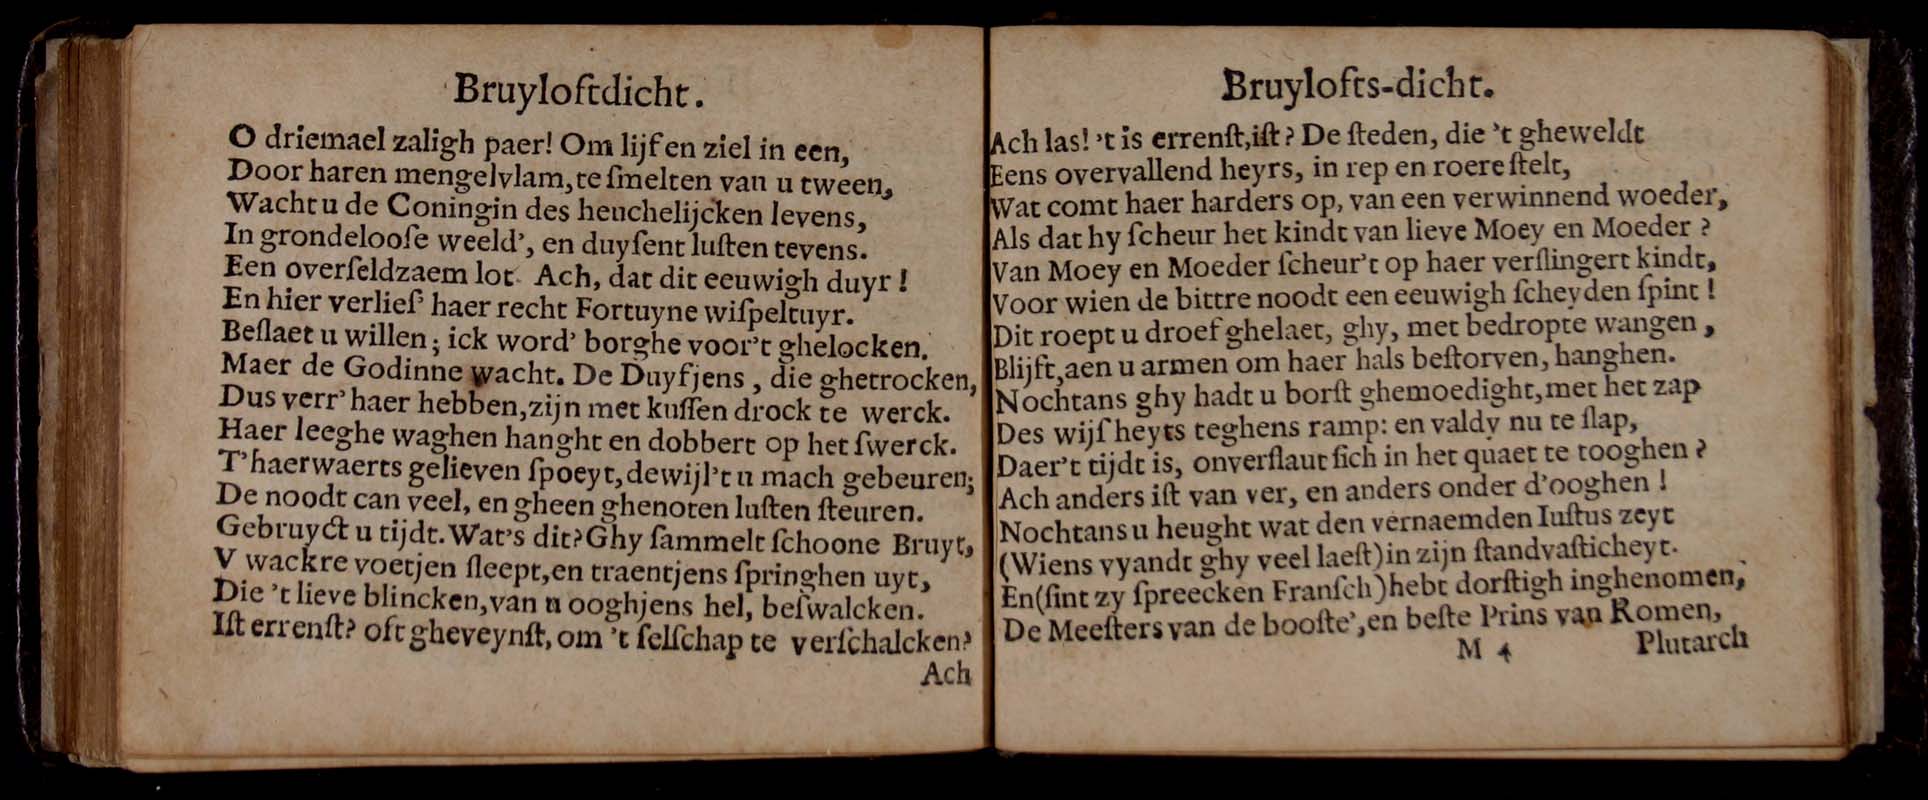 Bruyloftdicht.
O driemael zaligh paer! Om lijf en ziel in een,
Door haren mengelvlam, te ſmelten van u tween,
Wacht u de Coningin des heuchelijcken levens,
In grondelooſe weeld', en duyſent luſten tevens.
Een overſeldzaem lot. Ach, dat dit eeuwigh duyr!
En hier verlieſ' haer recht Fortuyne wiſpeltuyr.
Beſlaet u willen; ick word' borghe voor't ghelocken.
Maer de Godinne wacht. De Duyfjens, die ghetrocken,
Dus verr' haer hebben, zijn met kuſſen drock te werck.
Haer leeghe waghen hanght en dobbert op het ſwerck.
T'haerwaerts gelieven ſpoeyt, dewijl't u mach gebeuren;
De noodt can veel, en gheen ghenoten luſten ſteuren.
Gebruyct u tijdt. Wat's dit? Ghy ſammelt ſchoone Bruyt,
V wackre voetjen ſleept, en traentjens ſpringhen uyt,
Die 't lieve blincken, van u ooghjens hel, beſwalcken.
Iſt errenſt? oft gheveynſt, om 't ſelſchap te verſchalcken?
Ach
Bruylofts-dicht.
Ach las! 't is errenſt, iſt? De ſteden, die 't gheweldt
Eens overvallend heyrs, in rep en roere ſtelt,
Wat comt haer harders op, van een verwinnend woeder,
Als dat hy ſcheur het kindt van lieve Moey en Moeder?
Van Moey en Moeder ſcheur't op haer verſlingert kindt,
Voor wien de bittre noodt een eeuwigh ſcheyden ſpint!
Dit roept u droef ghelaet, ghy, met bedropte wangen,
Blijft, aen u armen om haer hals beſtorven, hanghen.
Nochtans ghy hadt u borſt ghemoedight, met het zap
Des wijſheyts teghens ramp: en valdy nu te ſlap,
Daer't tijdt is, onverſlaut ſich in het quaet te tooghen?
Ach anders iſt van ver, en anders onder d'ooghen!
Nochtans u heught wat den vernaemden Iuſtus zeyt
(Wiens vyandt ghy veel laeſt) in zijn ſtandvaſticheyt.
En (ſint zy ſpreecken Franſch) hebt dorſtigh inghenomen,
De Meeſters van de booſte', en beſte Prins van Romen,
M 4
Plutarch